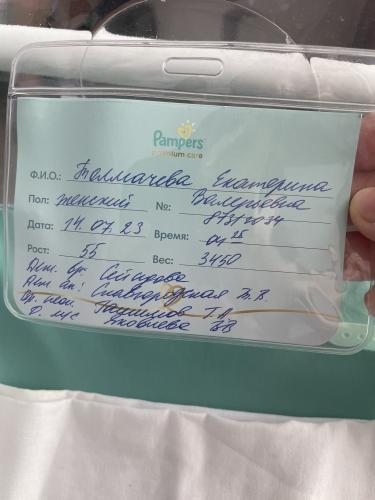 Pampers
premium care
Ф.И.О.: Толмачева Екатерина
Валерьевна
Пол: женский №: 873/2034
Дата: 14.07.23 Время: 01 25
Рост: 55 Вес: 3450
Дет. вр. Сеидова
Славгородская В.В.
Г.А.
Яковлева В.В